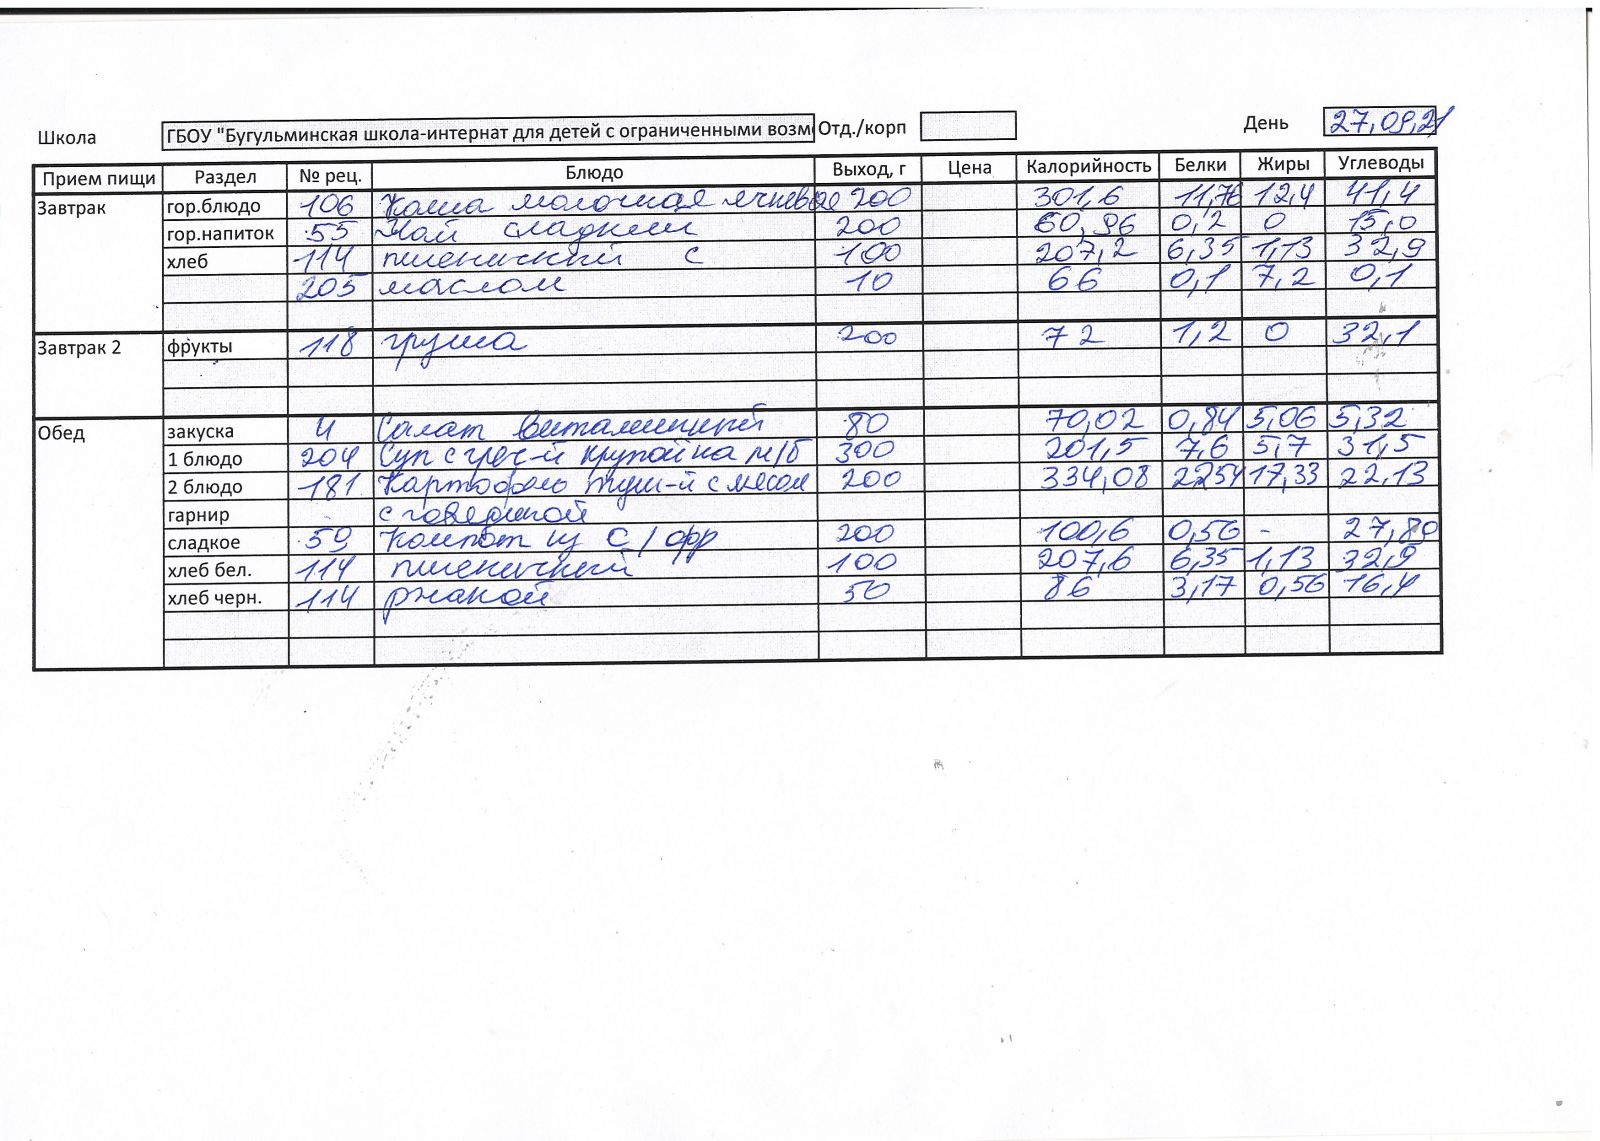 Школа ГБОУ "Бугульминская школа-интернат для детей с ограниченными возм Отд./корп День 27,09,21
Прием пищи Раздел № рец. Блюдо Выход, г Цена Калорийность Белки Жиры Углеводы
Завтрак гор.блюдо 106 Каша молочная ячневая 200 301,6 11,76 12,4 41,4
гор.напиток 55 Чай сладкий 200 60,96 0,2 0 15,0
хлеб 114 пшеничный с 100 207,2 6,35 1,13 32,9
205 маслом 10 66 0,1 7,2 0,1
Завтрак 2 фрукты 118 груша 200 72 1,2 0 32,1
Обед закуска 4 Салат Витаминный 80 70,02 0,84 5,06 5,32
1 блюдо 204 Суп с греч-й крупой на м/б 300 201,5 7,6 5,7 31,5
2 блюдо 181 Картофель туш-й с мясом 200 334,08 2254 17,33 22,13
гарнир с говядиной
сладкое 59 Компот из С/фр 200 100,6 0,56 - 27,89
хлеб бел. 114 пшеничный 100 207,6 6,35 1,13 32,9
хлеб черн. 114 ржаной 50 86 3,17 0,56 16,4